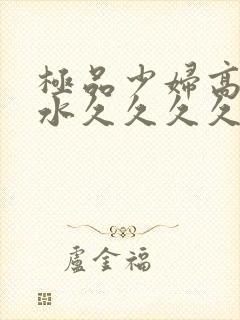 極品少婦高
水久久久久
盧金福